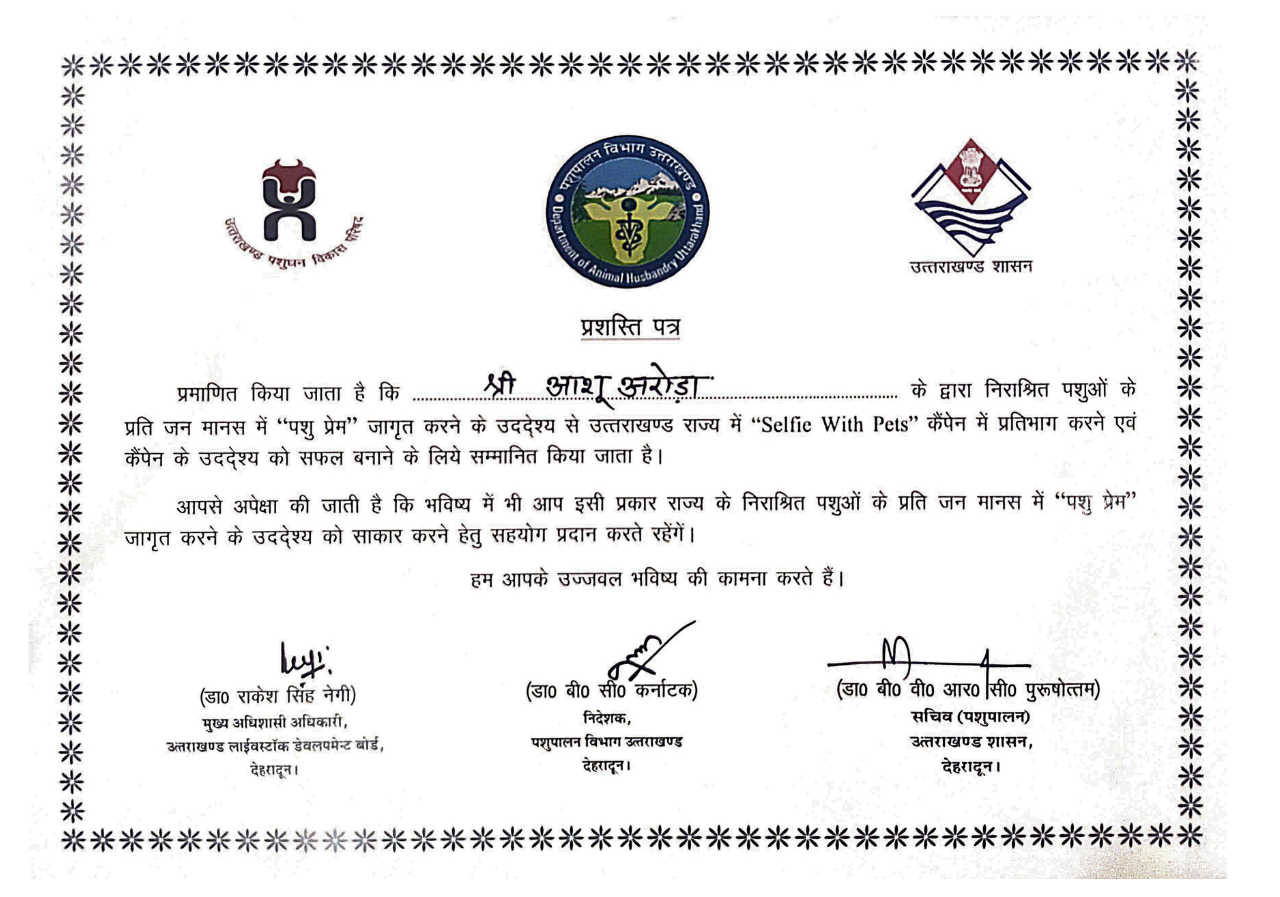 उत्तराखण्ड पशुधन विकास परिषद
पशुपालन विभाग उत्तराखण्ड
Department of Animal Husbandry Uttarakhand
उत्तराखण्ड शासन
प्रशस्ति पत्र
प्रमाणित किया जाता है कि श्री आशू अरोड़ा के द्वारा निराश्रित पशुओं के
प्रति जन मानस में “पशु प्रेम” जागृत करने के उददे्श्य से उत्तराखण्ड राज्य में “Selfie With Pets” कैंपेन में प्रतिभाग करने एवं
कैंपेन के उददे्श्य को सफल बनाने के लिये सम्मानित किया जाता है।
आपसे अपेक्षा की जाती है कि भविष्य में भी आप इसी प्रकार राज्य के निराश्रित पशुओं के प्रति जन मानस में “पशु प्रेम”
जागृत करने के उददे्श्य को साकार करने हेतु सहयोग प्रदान करते रहेंगें।
हम आपके उज्जवल भविष्य की कामना करते हैं।
(डा0 राकेश सिंह नेगी)
मुख्य अधिशासी अधिकारी,
उत्तराखण्ड लाईवस्टॉक डेवलपमेन्ट बोर्ड,
देहरादून।
(डा0 बी0 सी0 कर्नाटक)
निदेशक,
पशुपालन विभाग उत्तराखण्ड
देहरादून।
(डा0 बी0 वी0 आर0 सी0 पुरूषोत्तम)
सचिव (पशुपालन)
उत्तराखण्ड शासन,
देहरादून।